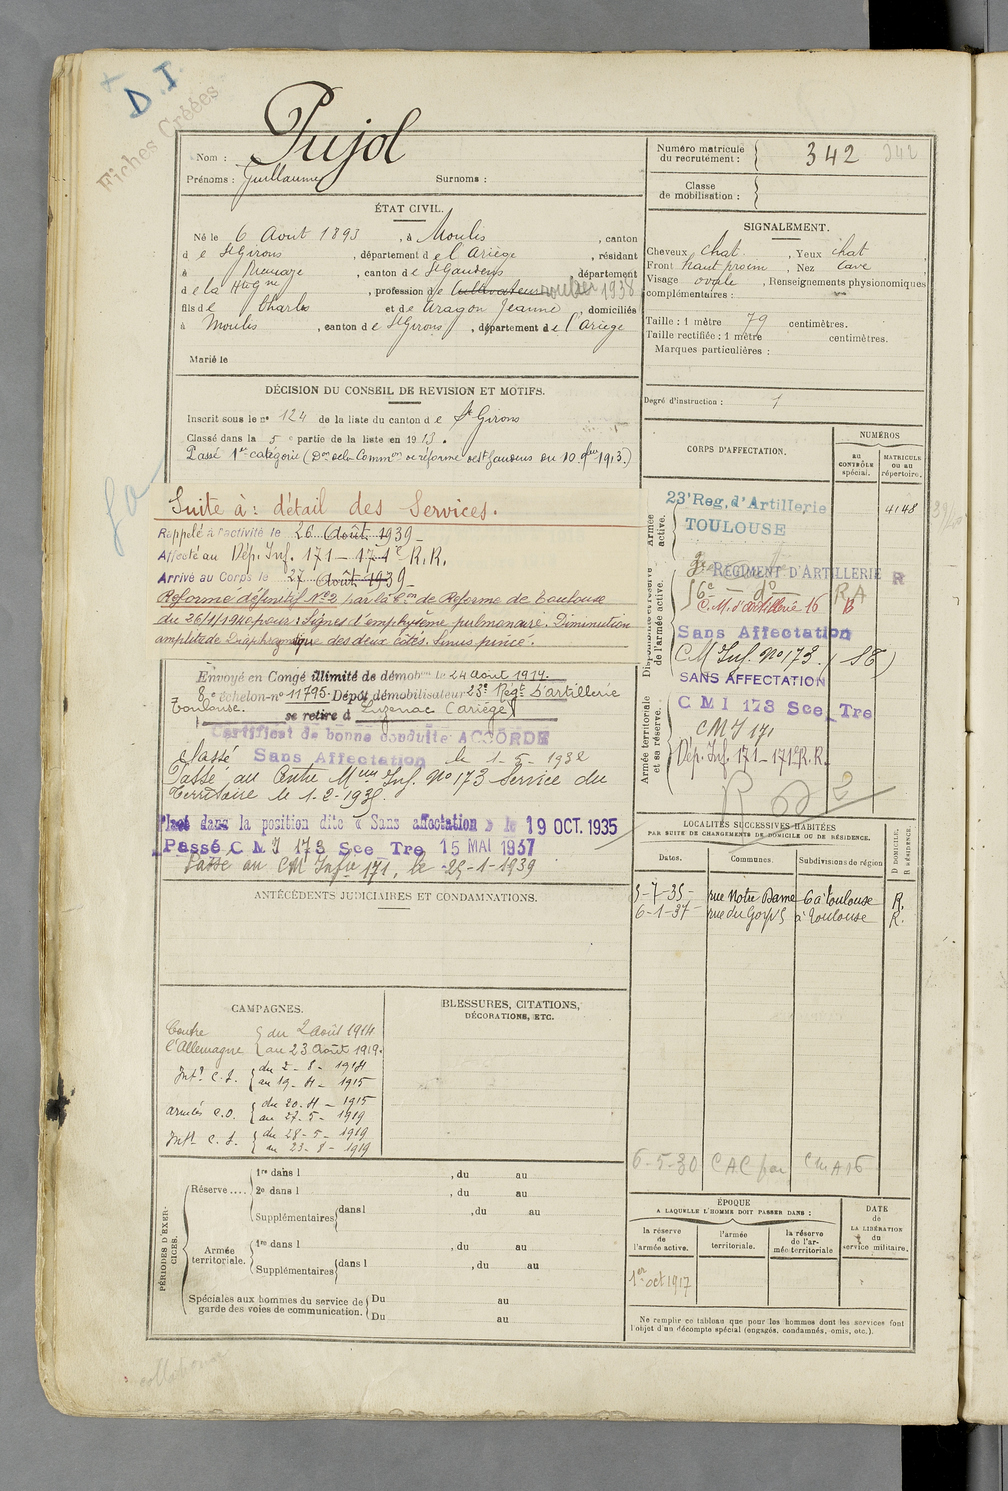 D. I.
Fiches Créées
Nom : Pujol
Prénoms : Guillaume Surnoms :
Numéro matricule du recrutement : 342 342
Classe de mobilisation :
ÉTAT CIVIL.
Né le 6 Aout 1893, à Moulis, canton
de St Girons, département de l'Ariège, résidant
à, canton de St Gaudens département
de la Hte Gne, profession de Cultivateur 1938
fils de Charles et de Aragon Jeanne, domiciliés
à Moulis, canton de St Girons, département de l'Ariège
Marié le
SIGNALEMENT.
Cheveux chat., Yeux chat
Front haut proem, Nez cave
Visage ovale, Renseignements physionomiques
complémentaires :
Taille : 1 mètre 79 centimètres.
Taille rectifiée : 1 mètre centimètres.
Marques particulières :
Degré d'instruction : 1
DÉCISION DU CONSEIL DE REVISION ET MOTIFS.
Inscrit sous le n° 124 de la liste du canton de St Girons
Classé dans la 5e partie de la liste en 1913.
Passé 1re catégorie (Don de la Common de réforme de St Gaudens du 10 1913.)
Suite à : détail des Services.
Rappelé à l'activité le 26 Août 1939
Affecté au Dép. Inf. 171 - 171e R.R.
Arrivé au Corps le 27 Août 1939
Réforme définitif N°2 par la Con de Réforme de Toulouse
du 26/1/1940 pour : Signes d'emphysème pulmonaire. Diminution
amplitude Diaphragmatique des deux côtés. Sinus pincé.
Envoyé en Congé illimité de démobon le 24 août 1919.
8e échelon n° 11795. Dépôt démobilisateur 23e Régt d'artillerie
Toulouse.
se retire à Luzenac (Ariège)
Certificat de bonne conduite ACCORDÉ
Classé Sans Affectation le 1-5-1932
Passé au Centre Mon Inf. No 173 Service du
Territoire le 1-2-1935.
Placé dans la position dite « Sans affectation » le 19 OCT. 1935
Passé C M I 173 Sce Tre 15 MAI 1937
Passé au CM Infie 171, le 25-1-1939
CORPS D'AFFECTATION.
NUMÉROS
au CONTRÔLE spécial.
MATRICULE ou au répertoire.
Armée active.
23e Reg. d'Artillerie 4148
TOULOUSE
Disponibilité et réserve de l'armée active.
REGIMENT D'ARTILLERIE R
16e — do — RA
C.M. d'artillerie 16 B
Sans Affectation
CM Inf. No 173. (ST)
SANS AFFECTATION
Armée territoriale et sa réserve.
C M I 173 Sce Tre
CMI 171
Dép. Inf. 171 - 171e R.R.
LOCALITÉS SUCCESSIVES HABITÉES
PAR SUITE DE CHANGEMENTS DE DOMICILE OU DE RÉSIDENCE.
Dates. Communes. Subdivisions de région D DOMICILE, R RÉSIDENCE.
3-7-35- rue Notre Dame 6 à Toulouse R.
6-1-37- à Toulouse R.
6-5-30 CAC par CMA 16
ANTÉCÉDENTS JUDICIAIRES ET CONDAMNATIONS.
CAMPAGNES.
Contre l'Allemagne du 2 août 1914
au 23 Août 1919.
Intr C.S. du 2-8-1914
au 19-4-1915
armées C.D. du 20-4-1915
au 27-5-1919
Intr C.S. du 28-5-1919
au 23-8-1919
BLESSURES, CITATIONS,
DÉCORATIONS, ETC.
PÉRIODES D'EXERCICES.
Réserve.... 1re dans l , du au
2e dans l , du au
Supplémentaires dans l , du au
Armée territoriale. 1re dans l , du au
Supplémentaires dans l , du au
Spéciales aux hommes du service de garde des voies de communication. Du au
Du au
ÉPOQUE
A LAQUELLE L'HOMME DOIT PASSER DANS :
la réserve de l'armée active.
l'armée territoriale.
la réserve de l'armée territoriale
DATE de LA LIBÉRATION du service militaire.
1er oct 1917
Ne remplir ce tableau que pour les hommes dont les services font
l'objet d'un décompte spécial (engagés, condamnés, omis, etc.).